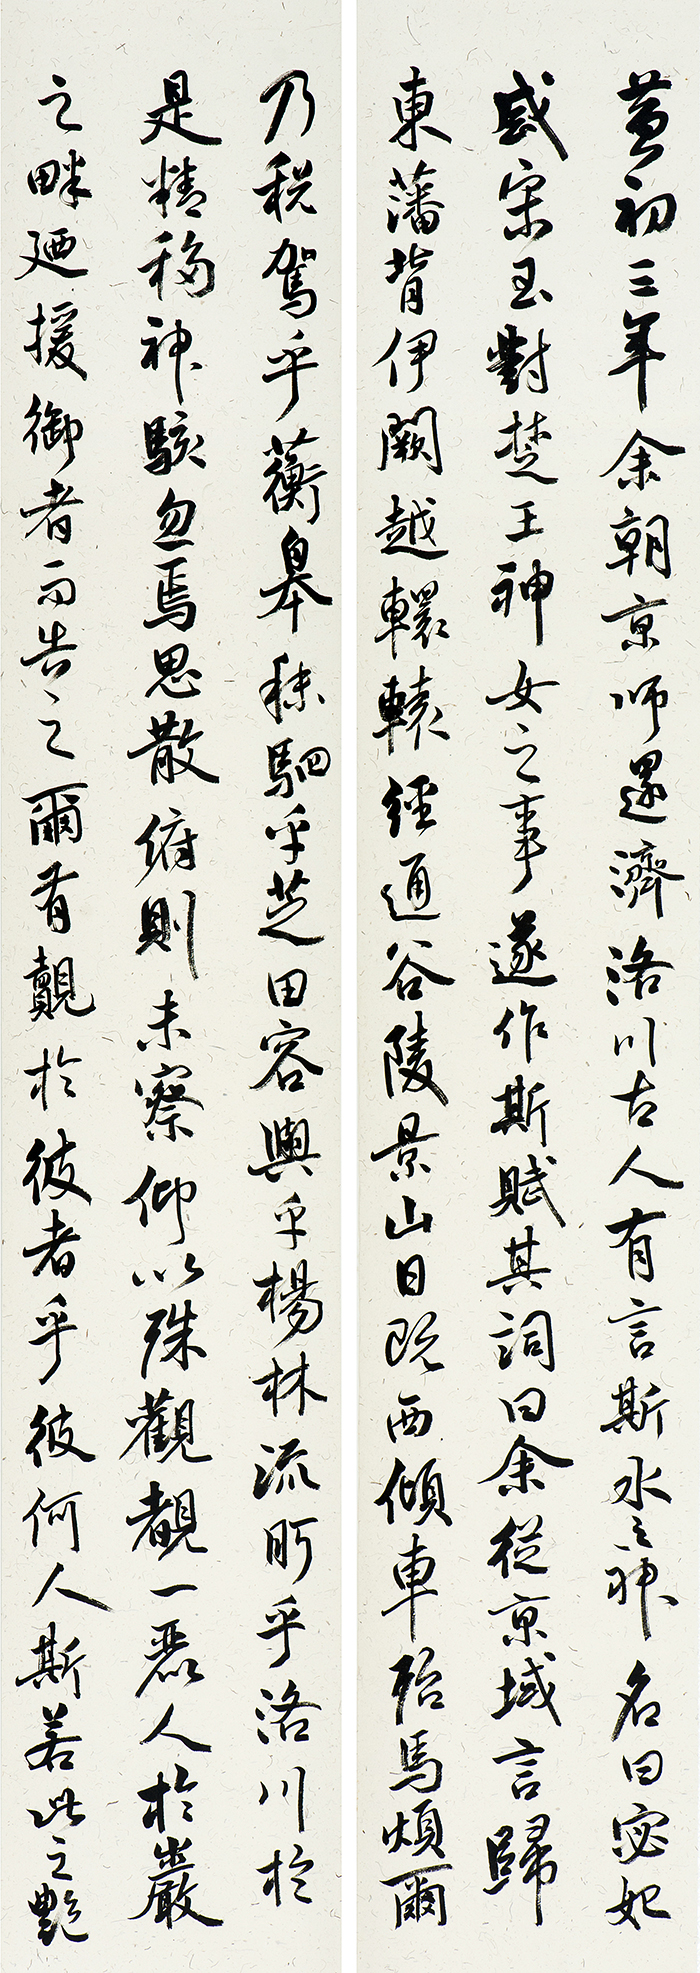 黄初三年余朝京師還濟洛川古人有言斯水之神名曰宓妃
感宋玉對楚王神女之事遂作斯賦其詞曰余從京域言歸
東藩背伊闕越轘轅經通谷陵景山日既西傾車殆馬煩爾
乃税駕乎蘅皋秣駟乎芝田容與乎楊林流盻乎洛川於
是精移神駭忽焉思散俯則未察仰以殊觀覩一麗人於巖
之畔迺援御者而告之爾有覿於彼者乎彼何人斯若此之艷